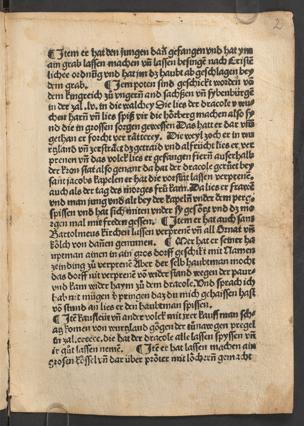 2
¶ Item er hat den jungen dan gefangen vnd hat ym
ain grab lassen machen vn̄ lassen besinge nach Cristē
licher ordnūg vnd hat im dz haubt ab geschlagen bey
dem grab. ¶ Item poten sind geschickt worden võ
dem kingreich zů vngern vnd sachßen vn̄ sybenbürgē
in der zal .lv. in die walchey Die lies der dracole v̄
harn vn̄ lies spiß vir die hörberg machen also
nd die in grossen sorgen gewessen Das hatt er dar vm̄
gethan er forcht ver rätterey. Die weyl zoch er in vn̄
land vn̄ zestrāct dz getraid vnd alfrücht lies er ver
prenen vn̄ das volck lies er gefangen fiern ausserhalb
der kron stat also genant da hat der dracole gerūet bey
sant jacobs kapelen er hat die vorstatt lassen verprenē
auch als der tag des morges frü kam. Da lies er frawē
vnd man jung vnd alt bey der kapeln̄ vnder dem perg
spissen vnd hat sich miten vnder sy gesötzt vnd dz mor
gen mal mit freden gessen. ¶ Item er hat auch sant
Bartolmeus kirchen lassen verprenē vn̄ all Ornat vn̄
kölch von danen genumen. ¶ Aber hat er seiner ha
uptman ainen in ain gros dorf geschikt mit Namen
zeinding zu verprenē Aber der selb haubtman mocht
das dorff nit verprenē võ wider stand wegen der paur
vnd kam wider haym zů dem dracole Vnd sprach ich
hab nit mügen pringen daz du mich gehaissen hast
võ stund an lies er den haubtman spyssen.
¶ Itē kauflewt vn̄ ander volck mit
komen von wurtzland gögen der tůnaw gen pregel
in zal, die hat der dracole alle lassen spyssen vn̄
ir gůt lassen nemē. ¶ Itē er hat lassen machen ain
grosen kössel vn̄ dar über prötter mit löchern gemacht